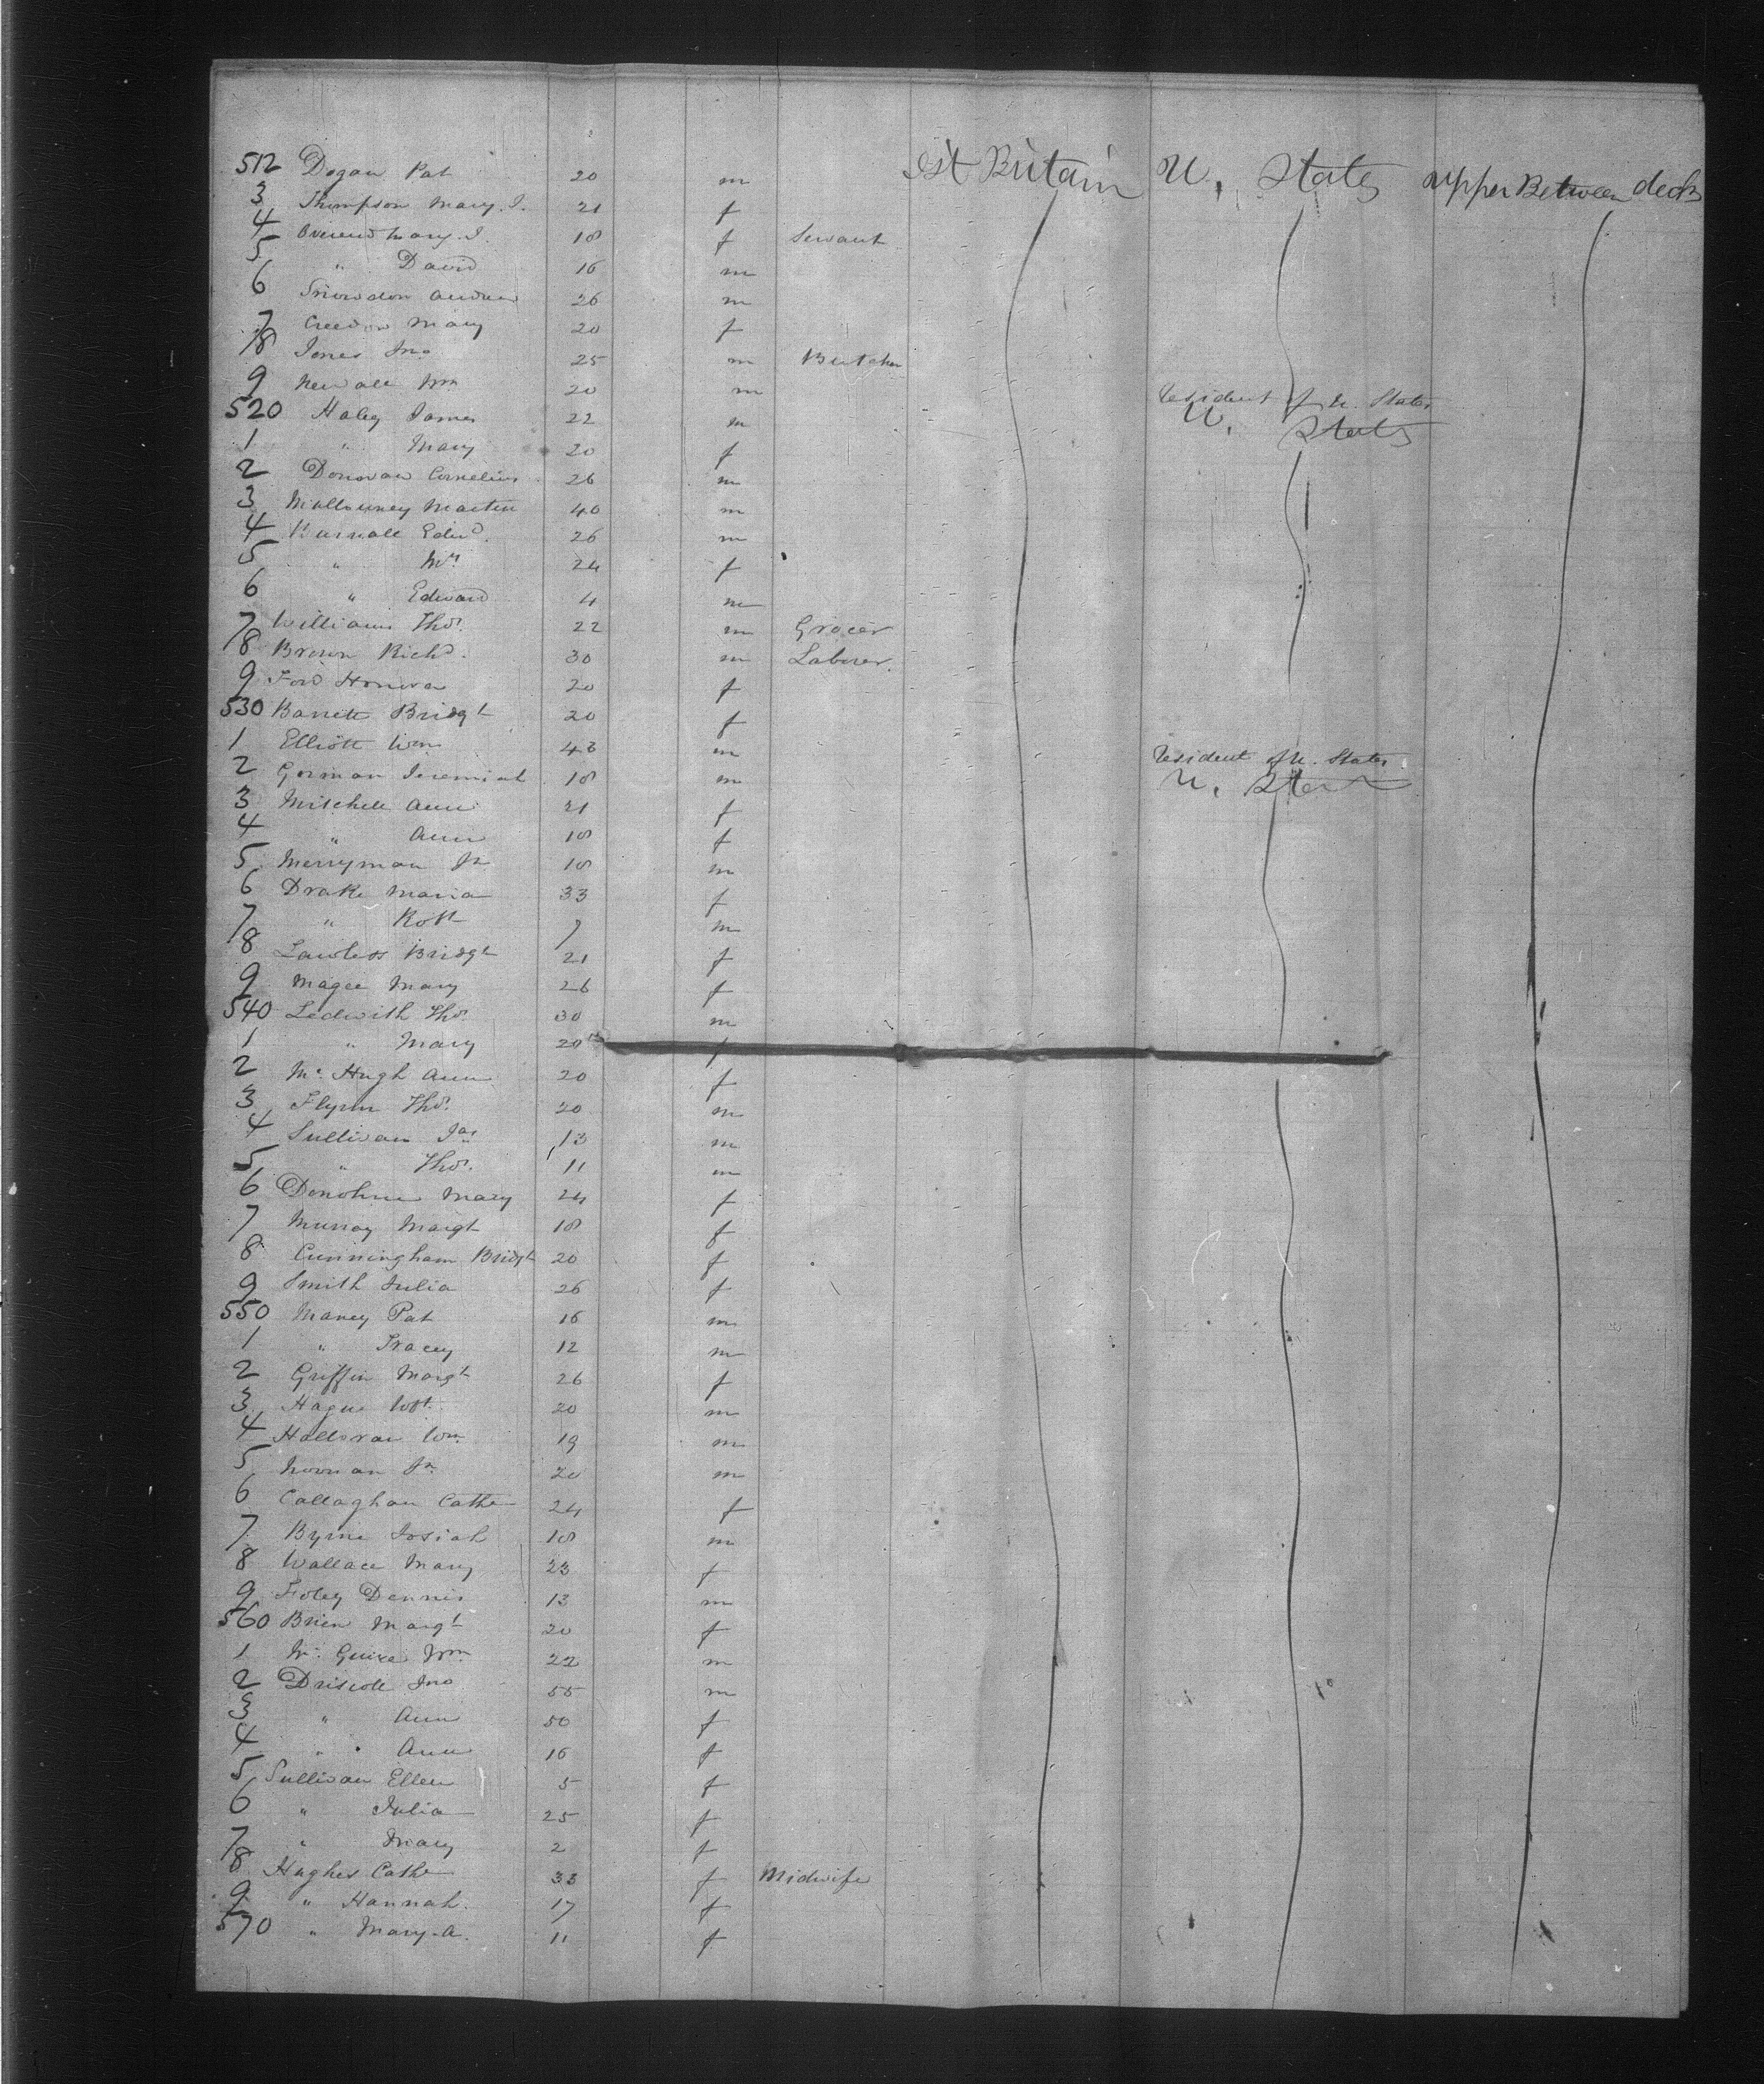 512 Dogan Pat 20 m Gt Britain U. States upper Between decks
3 Thompson Mary. J. 21 f
4 Overend Mary. J. 18 f Servant
5 " David 16 m
6 Snowdon Andrew 26 m
7 Creedon Mary 20 f
8 Jones Jno 25 m Butcher
9 Newall Wm 20 m Resident of U. States
520 Haley James 22 m U. States
1 " Mary 20 f
2 Donovan Cornelius 26 m
3 Mullowney Martin 40 m
4 Edwd. 26 m
5 " Mrs 24 f
6 " Edward 4 m
7 Williams Thos. 22 m Grocer
8 Brown Richd. 30 m Laborer.
9 Ford Honora 20 f
530 Barrett Bridgt 20 f
1 Elliott Wm 43 m Resident of U. States
2 Gorman Jeremiah 18 m U. States
3 Mitchell Ann 21 f
4 " Ann 18 f
5 Merryman Jn 18 m
6 Drake Maria 33 f
7 " Robt 7 m
8 Lawless Bridgt 21 f
9 Magee Mary 26 f
540 Ledwith Thos. 30 m
1 " Mary 20 f
2 Mc Hugh Ann 20 f
3 Flynn Thos. 20 m
4 Sullivan Jas 13 m
5 " Thos. 11 m
6 Donohue Mary 24 f
7 Murray Margt 18 f
8 Cunningham Bridgt 20 f
9 Smith Julia 26 f
550 Maney Pat 16 m
1 " Tracey 12 m
2 Griffin Margt 26 f
3 Hague 20 m
4 Halloran Wm. 19 m
5 Noonan Jn. 20 m
6 Callaghan Cathe 24 f
7 Byrne Josiah 18 m
8 Wallace Mary 23 f
9 Foley Dennis 13 m
560 Brien Margt 20 f
1 Mc Guire Wm 22 m
2 Driscoll Jno 55 m
3 " Ann 50 f
4 " Ann 16 f
5 Sullivan Ellen 5 f
6 " Julia 25 f
7 " Mary 2 f
8 Hughes Cathe 33 f Midwife
9 " Hannah. 17 f
570 " Mary. A. 11 f